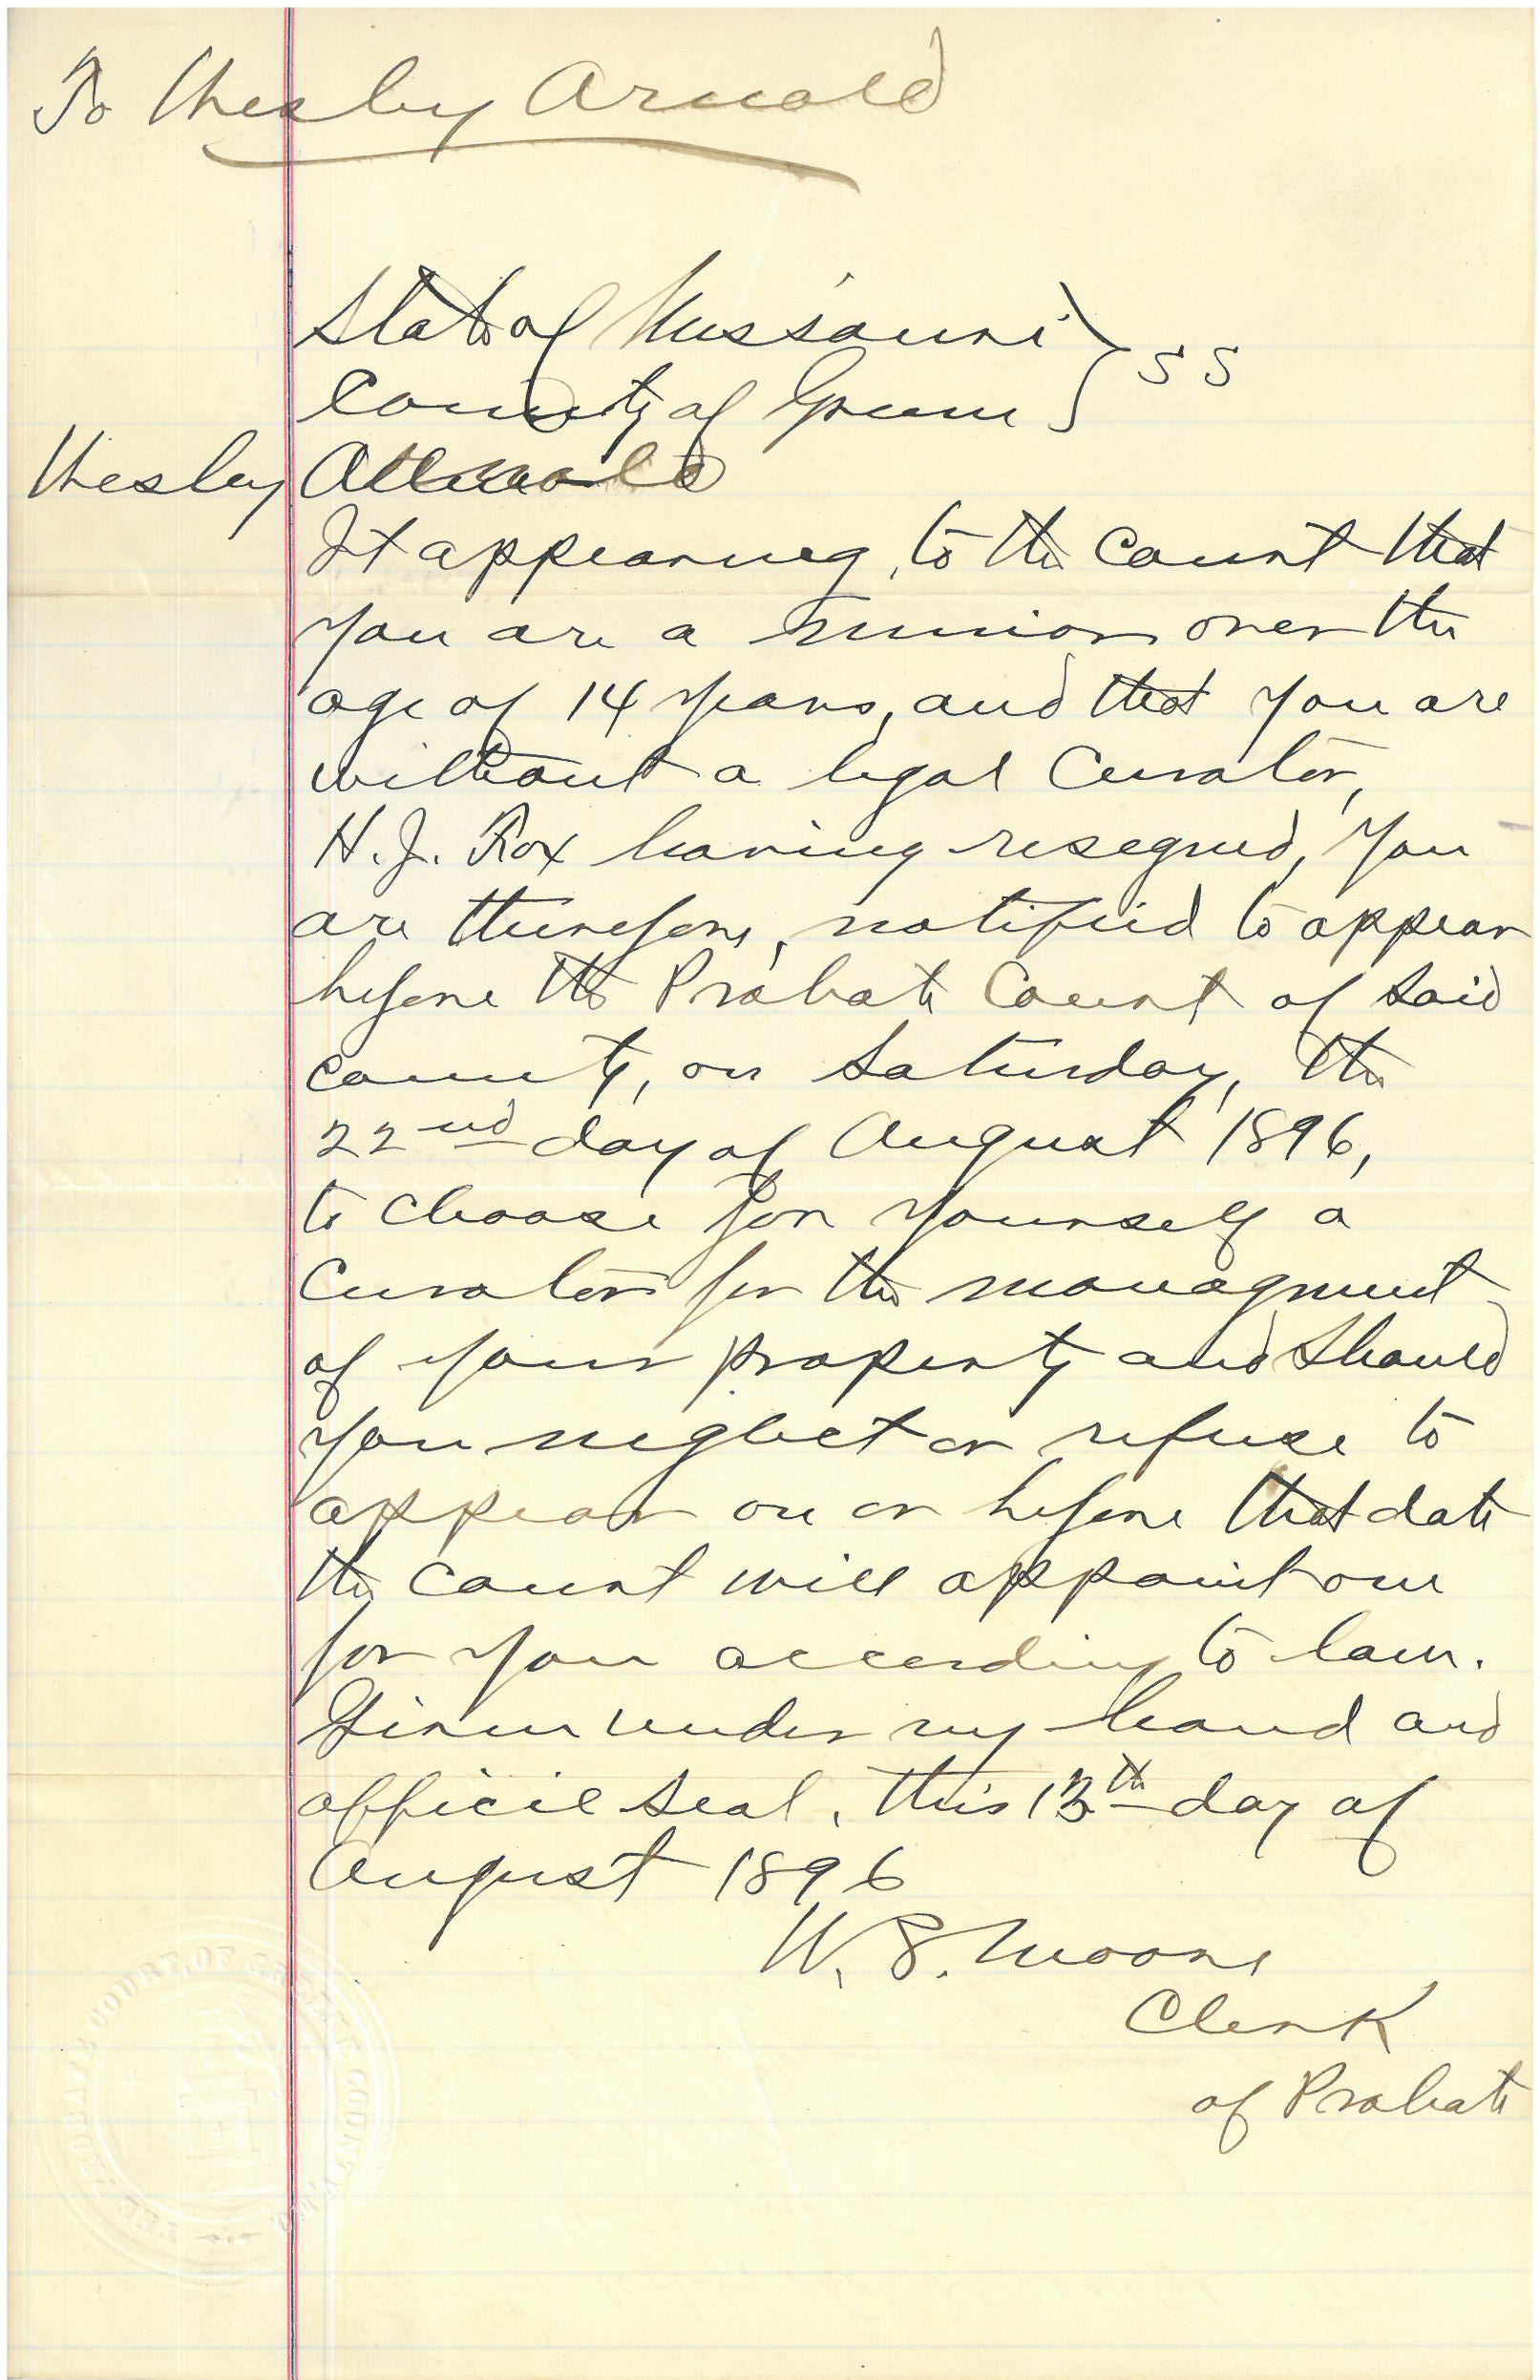 To Wesley Arnold
State of Missouri } SS
County of Greene
Wesley Arnold
It appearing, to the Court that
you are a minor over the
age of 14 years, and that you are
without a legal Curator,
H. J. Rox having resegned, You
are therefore, notified to appear
before the Probate Court of said
county, on Saturday, the
22nd day of August 1896,
to choose for yourself a
Curator for the managment
of your property and should
you neglect or refuse to
appear on or before that date
the Court will appoint one
for you according to law.
Given under my hand and
officiel seal, this 13th day of
August 1896
W. S. Moore
Clerk
of Probate